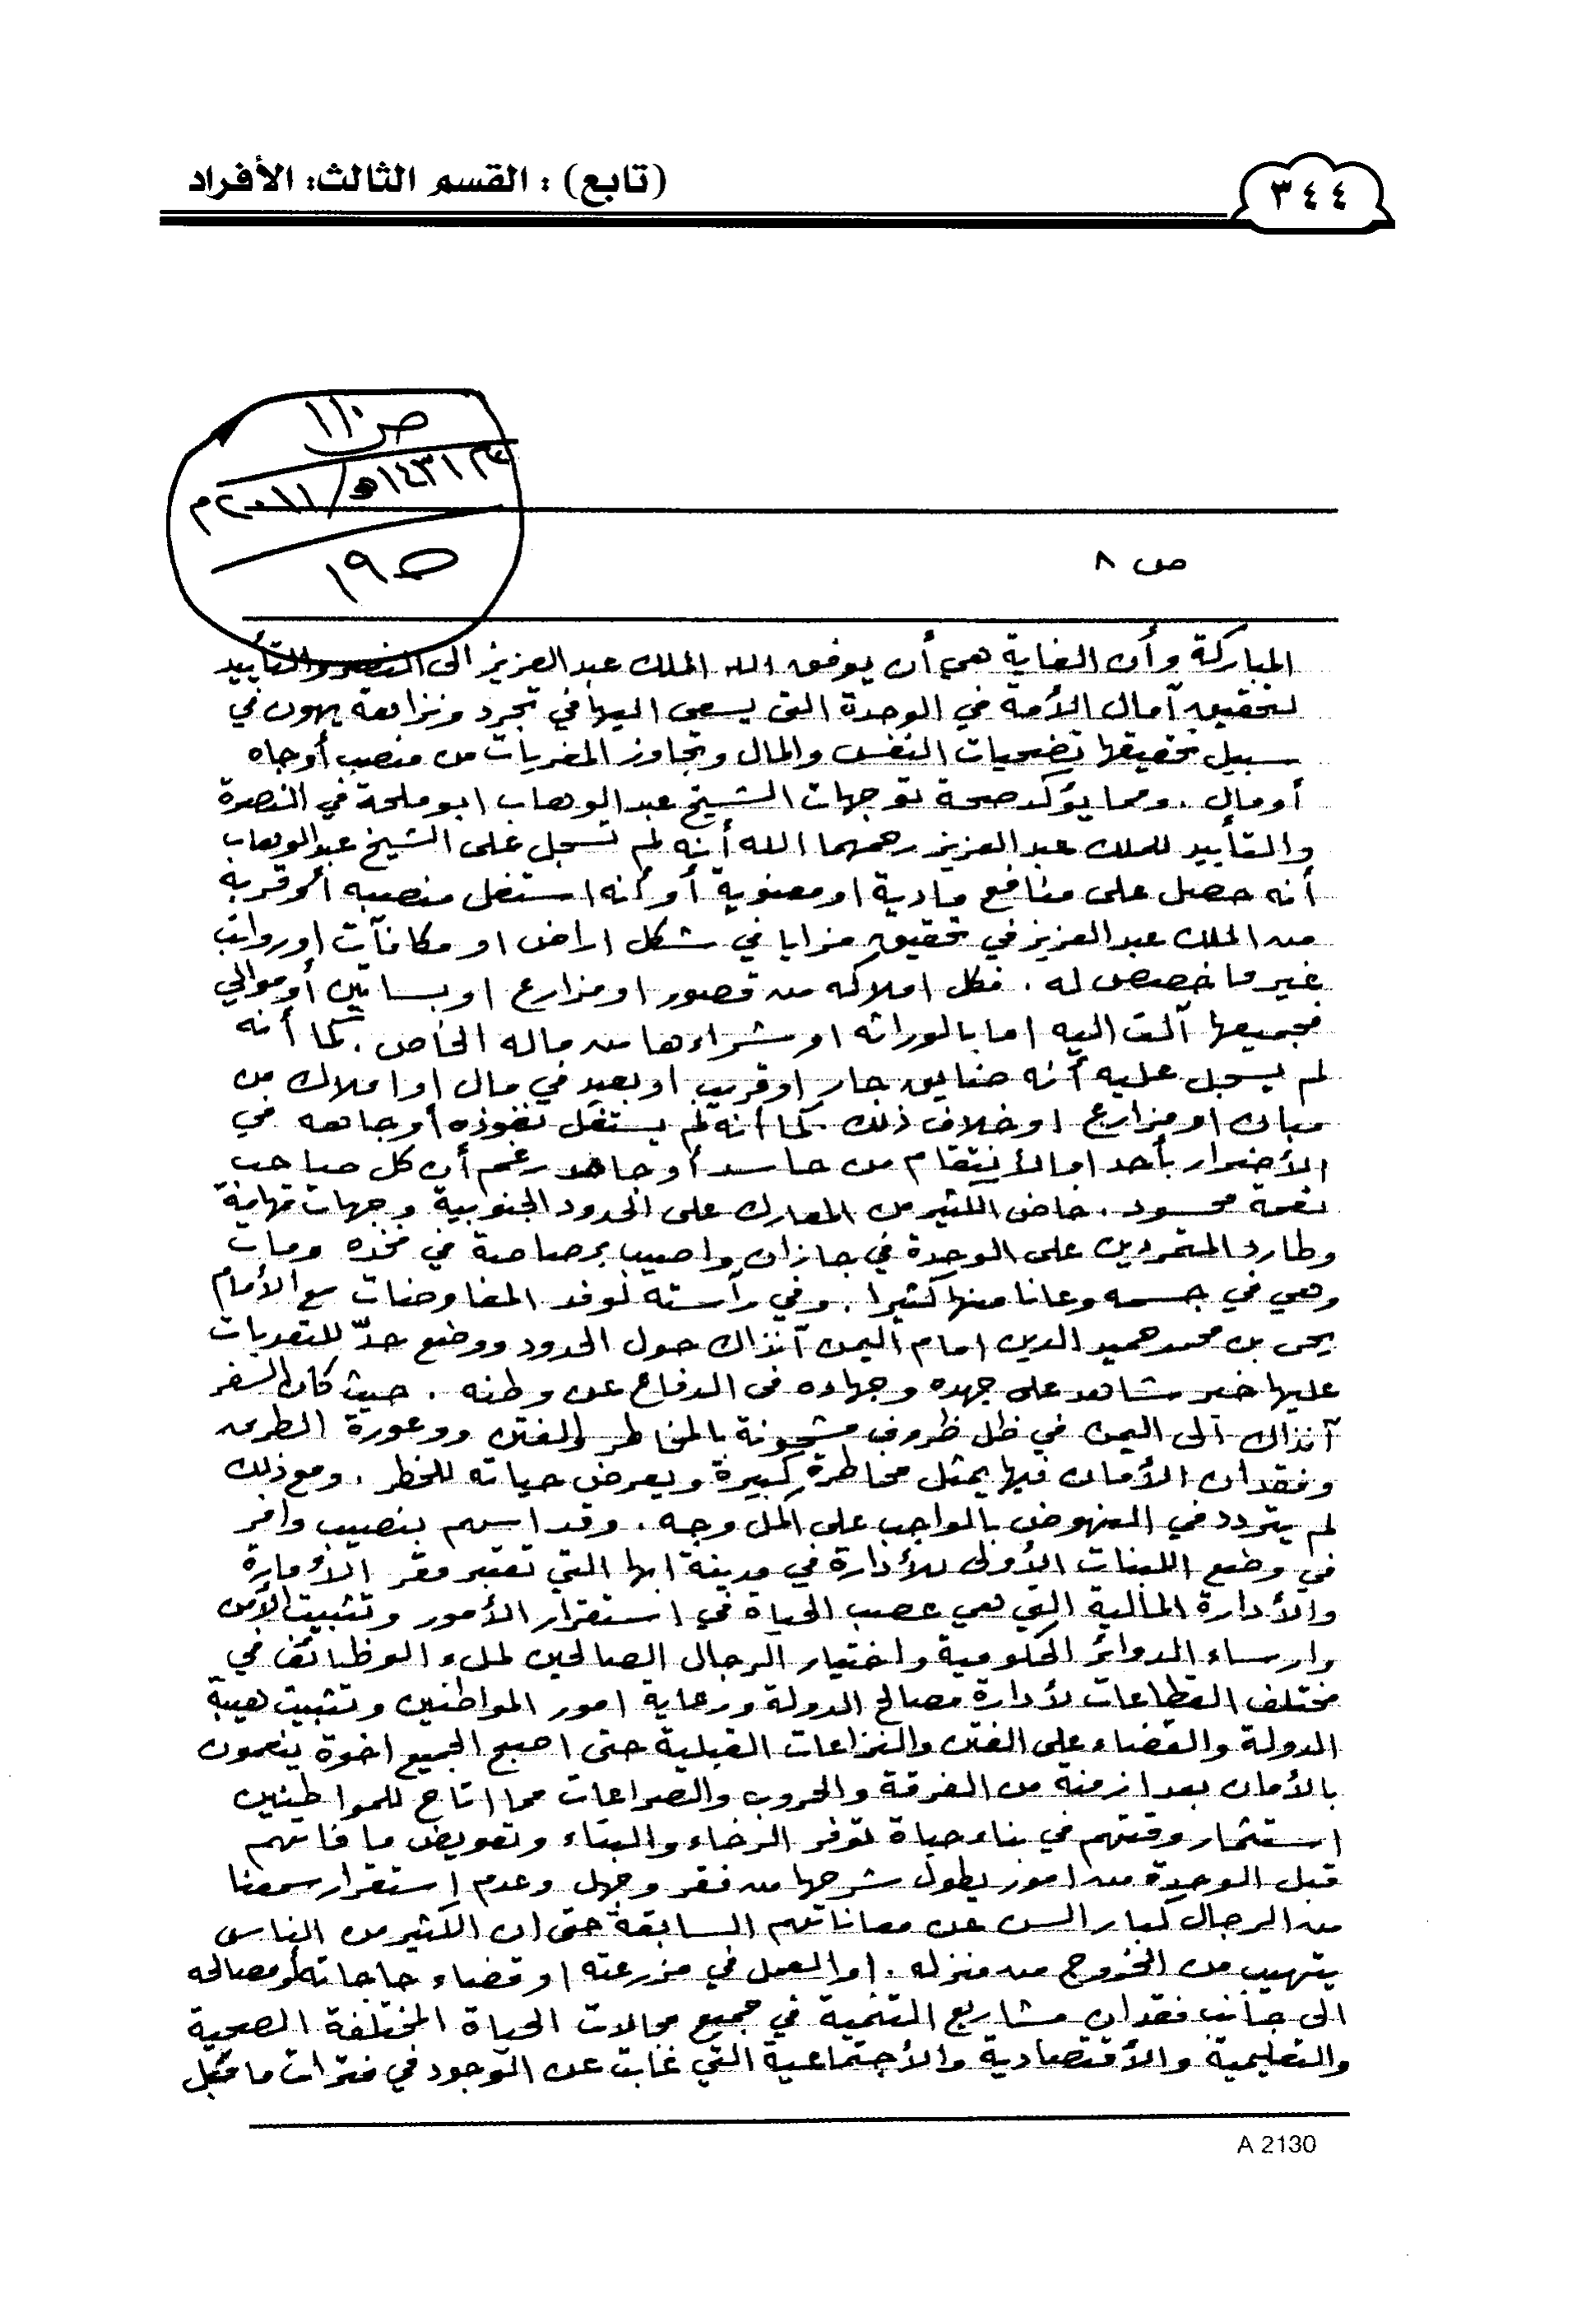 ٣٤٤
(تابع) : القسم الثالث: الأفراد
ص ١١٠
١٤٣١هـ / ٢٠١١م
ص ١٩
ص ٨
المباركة وأن الغاية هي أن يوفق الله الملك عبدالعزيز الى النصر والتأييد
لتحقيق آمال الأمة في الوحدة التى يسعى اليها في تجرد ونزاهة يهون في
سبيل تحقيقها تضحيات النفس والمال وتجاوز المغريات من منصب أو جاه
أو مال . ومما يؤكد صحة توجهات الشيخ عبدالوهاب ابوملحة في النصرة
والتأييد للملك عبدالعزيز رحمهما الله أنه لم تسجل على الشيخ عبدالوهاب
أنه حصل على منافع مادية او معنوية أو أنه استغل منصبه أو قربه
من الملك عبدالعزيز في تحقيق مزايا في شكل اراض او مكافآت او رواتب
غير ما خصص له . فكل املاكه من قصور او مزارع او بساتين أو موالي
فجميعها آلت اليه اما بالوراثه او شراءها من ماله الخاص . كما أنه
لم يسجل عليه أنه ضايق جار او قريب او بعيد في مال او املاك من
مبان او مزارع او خلاف ذلك . كما أنه لم يستغل نفوذه أو جاهه في
الأضرار بأحد او الأنتقام من حاسد أو جاهد رغم أن كل صاحب
نعمة محسود . خاض الكثير من المعارك على الحدود الجنوبية وجهات تهامة
وطارد المتمردين على الوحدة في جازان واصيب برصاصة في فخذه ومات
وهي في جسمه وعانا منها كثيرا . وفي رآسته لوفد المفاوضات مع الأمام
يحى بن محمد حميد الدين امام اليمن آنذاك حول الحدود ووضع حدّ للتعديات
عليها خير شاهد على جهده وجهاده فى الدفاع عن وطنه . حيث كان السفر
آنذاك الى اليمن في ظل ظروف مشحونة بالمخاطر والفتن ووعورة الطريق
وفقدان الأمان فيها يمثل مخاطرة كبيرة ويعرض حياته للخطر . ومع ذلك
لم يتردد في النهوض بالواجب على اكمل وجه . وقد اسهم بنصيب وافر
في وضع اللبنات الأولى للأدارة في مدينة ابها التي تعتبر مقر الأمارة
والأدارة المالية التي هي عصب الحياة في استقرار الأمور وتثبيت الأمن
وارساء الدوائر الحكومية واختيار الرجال الصالحين لملء الوظائف في
مختلف القطاعات لأدارة مصالح الدولة ورعاية امور المواطنين وتثبيت هيبة
الدولة والقضاء على الفتن والنزاعات القبلية حتى اصبح الجميع اخوة ينعمون
بالأمان بعد ازمنة من الفرقة والحروب والصراعات مما اتاح للمواطنين
استثمار وقتهم في بناء حياة توفر الرخاء والبناء وتعويض ما فاتهم
قبل الوحدة من امور يطول شرحها من فقر وجهل وعدم استقرار سمعنا
من الرجال كبار السن عن معاناتهم السابقة حتى ان الكثير من الناس
يتهيب من الخروج من منزله . او العمل في مزرعته او قضاء حاجاته أو مصالحه
الى جانب فقدان مشاريع التنمية في جميع مجالات الحياة المختلفة الصحية
والتعليمية والأقتصادية والأجتماعية التي غابت عن الوجود في فترات ما قبل
A 2130